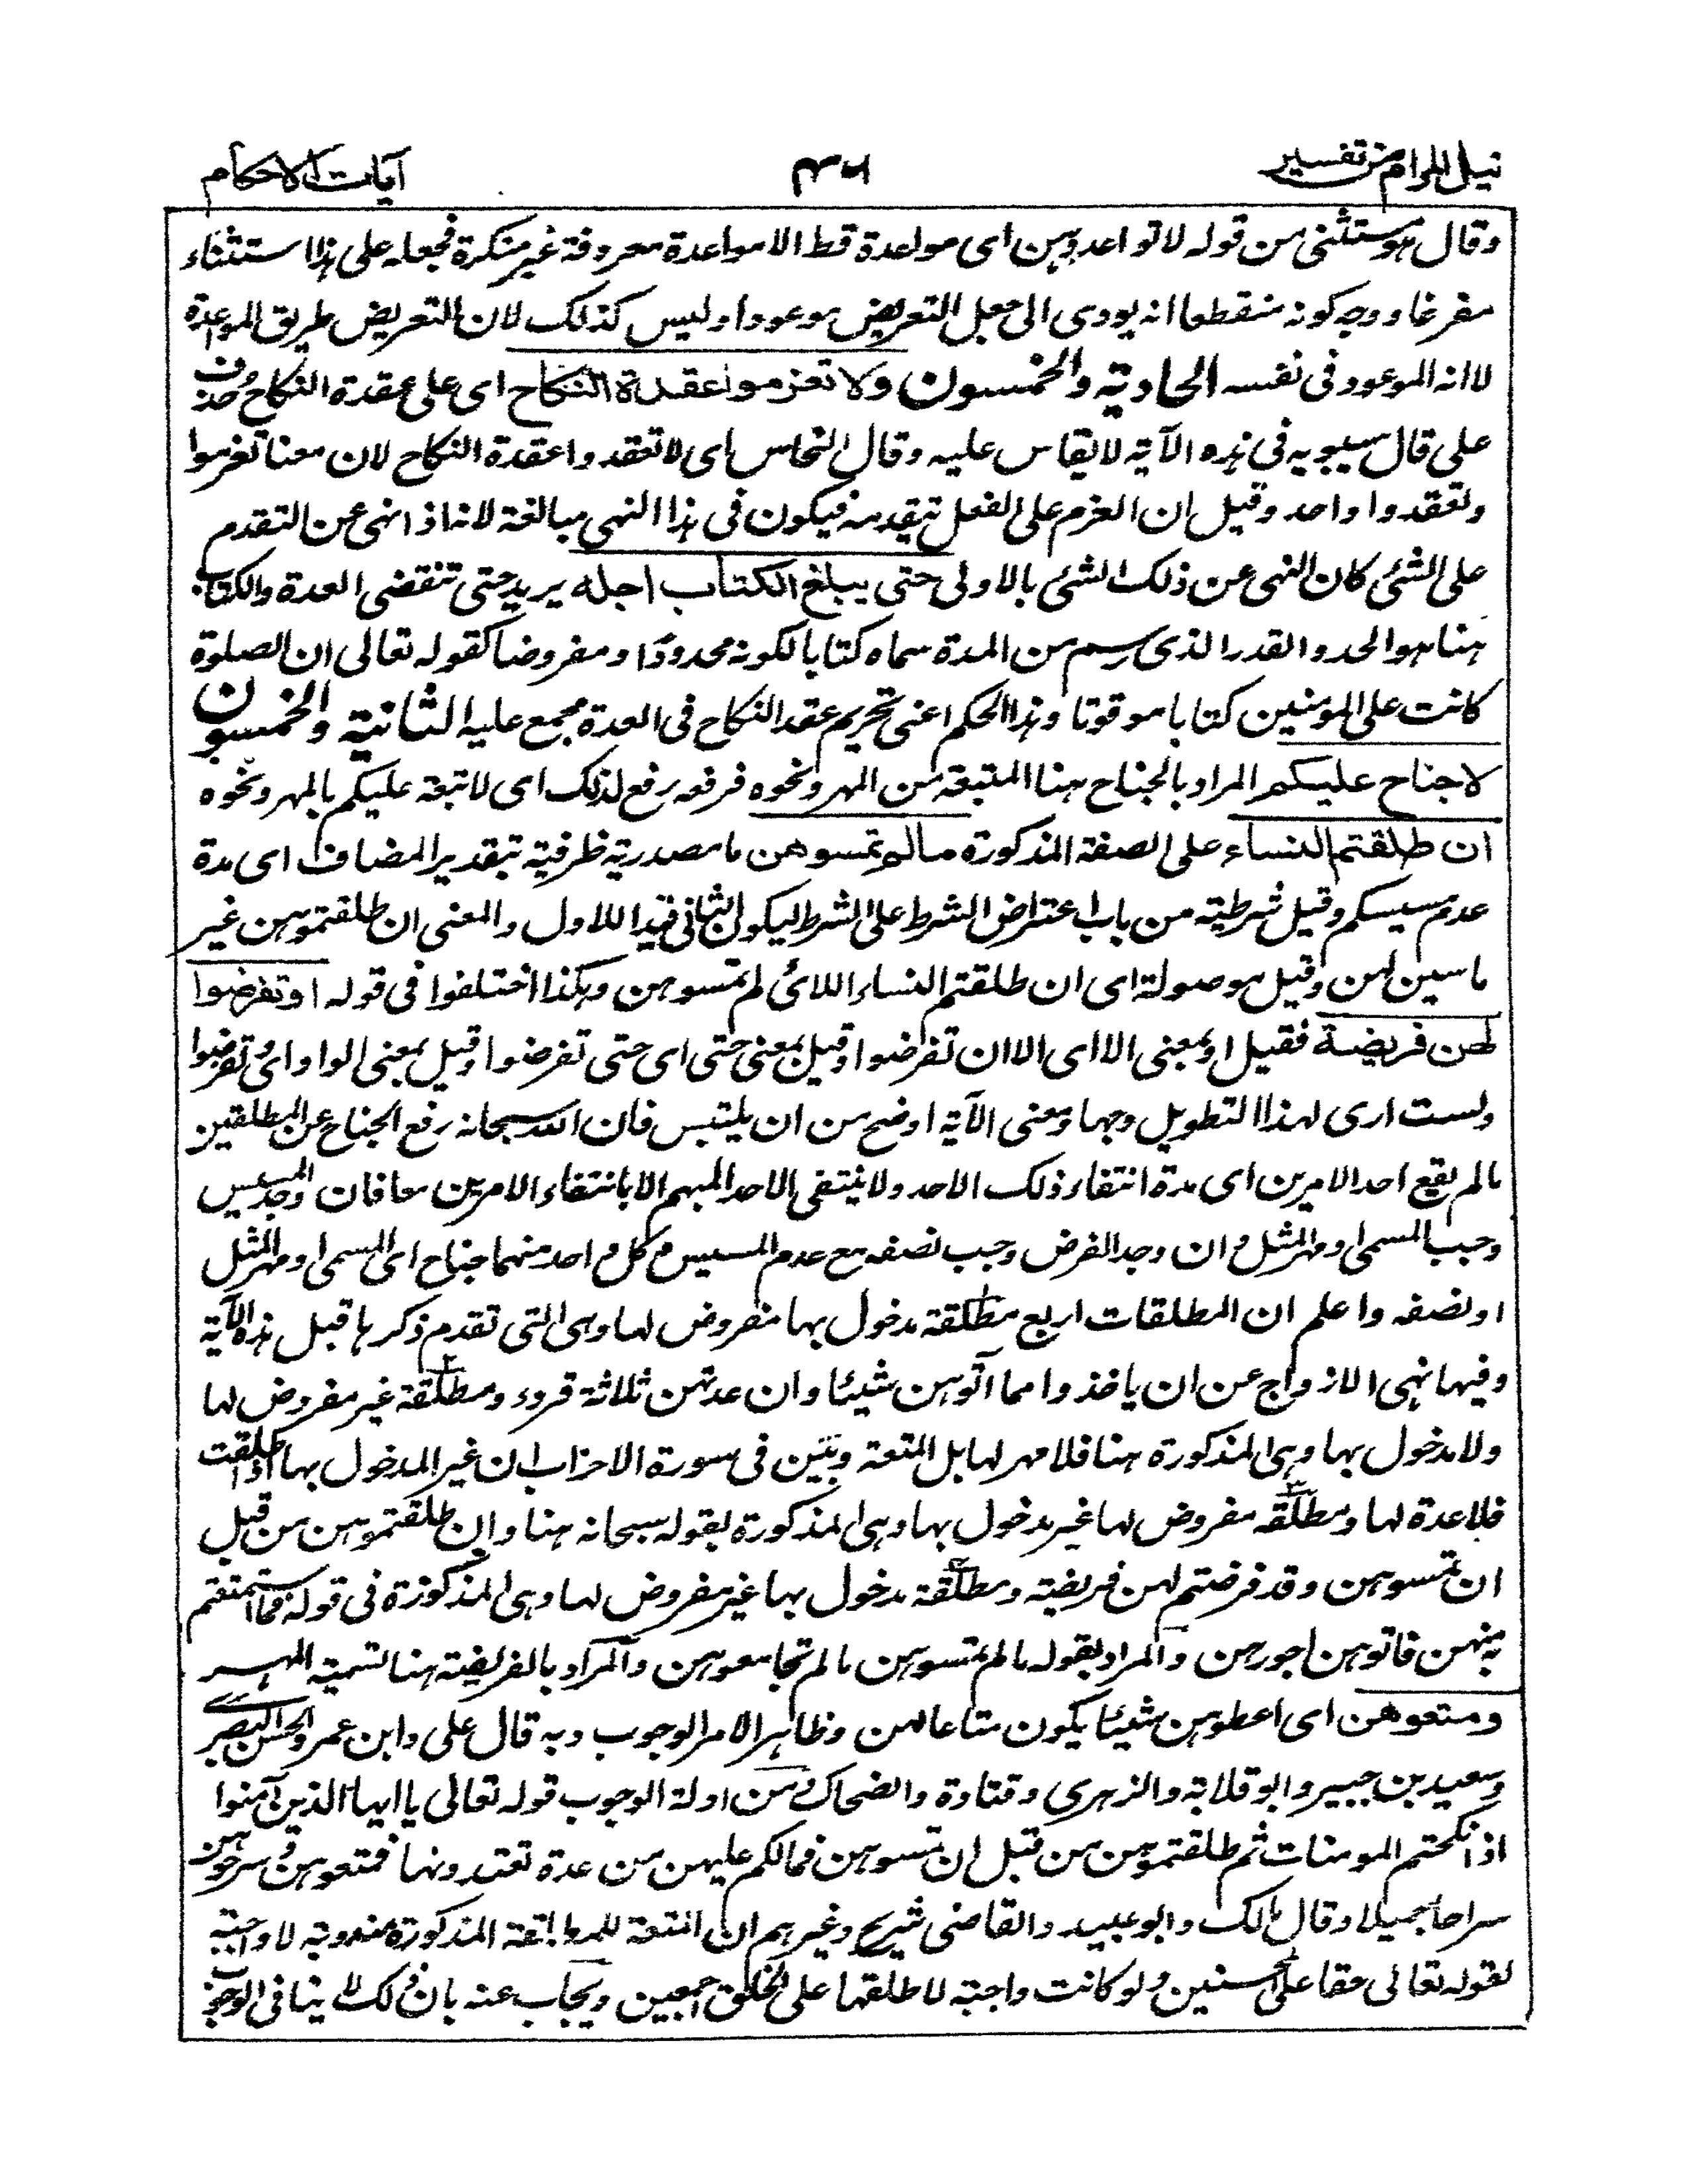 نيل المرام من تفسير
آيات الاحكام
وقال هو مستثنى من قوله لا تواعدوهن اى مواعدة قط الا مواعدة معروفة غير منكرة فجعله على هذا استثناء
مفرغا ووجه كونه منقطعا انه يودى الى جعل التعريض موعودا وليس كذلك لان التعريض طريق المواعدة
لا انه الموعود فى نفسه الحادية والخمسون ولا تعزموا عقدة النكاح اى على عقدة النكاح حذف
على قال سيبويه فى هذه الآية لا يقاس عليه وقال النحاس اى لا تعقدوا عقدة النكاح لان معنا تعزموا
وتعقدوا واحد وقيل ان العزم على الفعل يتقدمه فيكون فى هذا النهى مبالغة لانه اذا نهى عن التقدم
على الشئ كان النهى عن ذلك الشئ بالاولى حتى يبلغ الكتاب اجله يريد حتى تنقضى العدة والكتاب
هنا هو الحد والقدر الذى رسم من المدة سماه كتابا لكونه محدودًا ومفروضا كقوله تعالى ان الصلوة
كانت على المؤمنين كتابا موقوتا وهذا الحكم اعنى تحريم عقد النكاح فى العدة مجمع عليه الثانية والخمسون
لا جناح عليكم المراد بالجناح هنا التبعة من المهر ونحوه فرفعه رفع لذلك اى لا تبعة عليكم بالمهر ونحوه
ان طلقتم النساء على الصفة المذكورة مالم تمسوهن ما مصدرية ظرفية بتقدير المضاف اى مدة
عدم مسيسكم وقيل شرطية من باب اعتراض الشرط على الشرط ليكون الثانى قيدا للاول والمعنى ان طلقتموهن غير
ماسين لهن وقيل موصولة اى ان طلقتم النساء اللائى لم تمسوهن وهكذا اختلفوا فى قوله او تفرضوا
لهن فريضة فقيل او بمعنى الا اى الا ان تفرضوا وقيل بمعنى حتى اى حتى تفرضوا وقيل بمعنى الواو اى وتفرضوا
ولست ارى لهذا التطويل وجها ومعنى الآية اوضح من ان يلتبس فان الله سبحانه رفع الجناح عن المطلقين
مالم يقع احد الامرين اى مدة انتفاء ذلك الاحد ولا ينتفى الاحد المبهم الا بانتفاء الامرين معا فان وجد المسيس
وجب المسمى او مهر المثل وان وجد الفرض وجب نصفه مع عدم المسيس وكل واحد منهما جناح اى المسمى او مهر المثل
او نصفه واعلم ان المطلقات اربع مطلقة مدخول بها مفروض لها وهى التى تقدم ذكرها قبل هذه الآية
وفيها نهى الازواج عن ان ياخذوا مما آتوهن شيئا وان عدتهن ثلاثة قروء ومطلقة غير مفروض لها
ولا مدخول بها وهى المذكورة هنا فلا مهر لها بل المتعة وبين فى سورة الاحزاب ان غير المدخول بها اذا طلقت
فلا عدة لها ومطلقه مفروض لها غير مدخول بها وهى المذكورة بقوله سبحانه هنا وان طلقتموهن من قبل
ان تمسوهن وقد فرضتم لهن فريضة ومطلقة مدخول بها غير مفروض لها وهى المذكورة فى قوله فما استمتعتم
به منهن فاتوهن اجورهن والمراد بقوله مالم تمسوهن مالم تجامعوهن والمراد بالفريضة هنا تسمية المهر
ومتعوهن اى اعطوهن شيئا يكون متاعا لهن وظاهر الامر الوجوب وبه قال على وابن عمر والحسن البصرى
وسعيد بن جبير وابو قلابة والزهري وقتادة والضحاك ومن ادلة الوجوب قوله تعالى يا ايها الذين آمنوا
اذا نكحتم المومنات ثم طلقتموهن من قبل ان تمسوهن فمالكم عليهن من عدة تعتدونها فمتعوهن وسرحوهن
سراحا جميلا وقال مالك وابو عبيد والقاضى شريح وغيرهم ان المتعة للمطلقة المذكورة مندوبة لا واجبة
لقوله تعالى حقا على المحسنين ولو كانت واجبة لاطلقها على الخلق اجمعين ويجاب عنه بان ذلك لا ينافى الوجوب